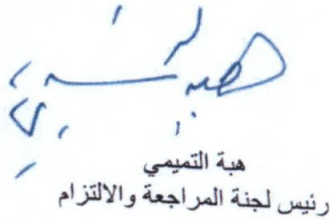 هبة التميمي
رئيس لجنة المراجعة والالتزام